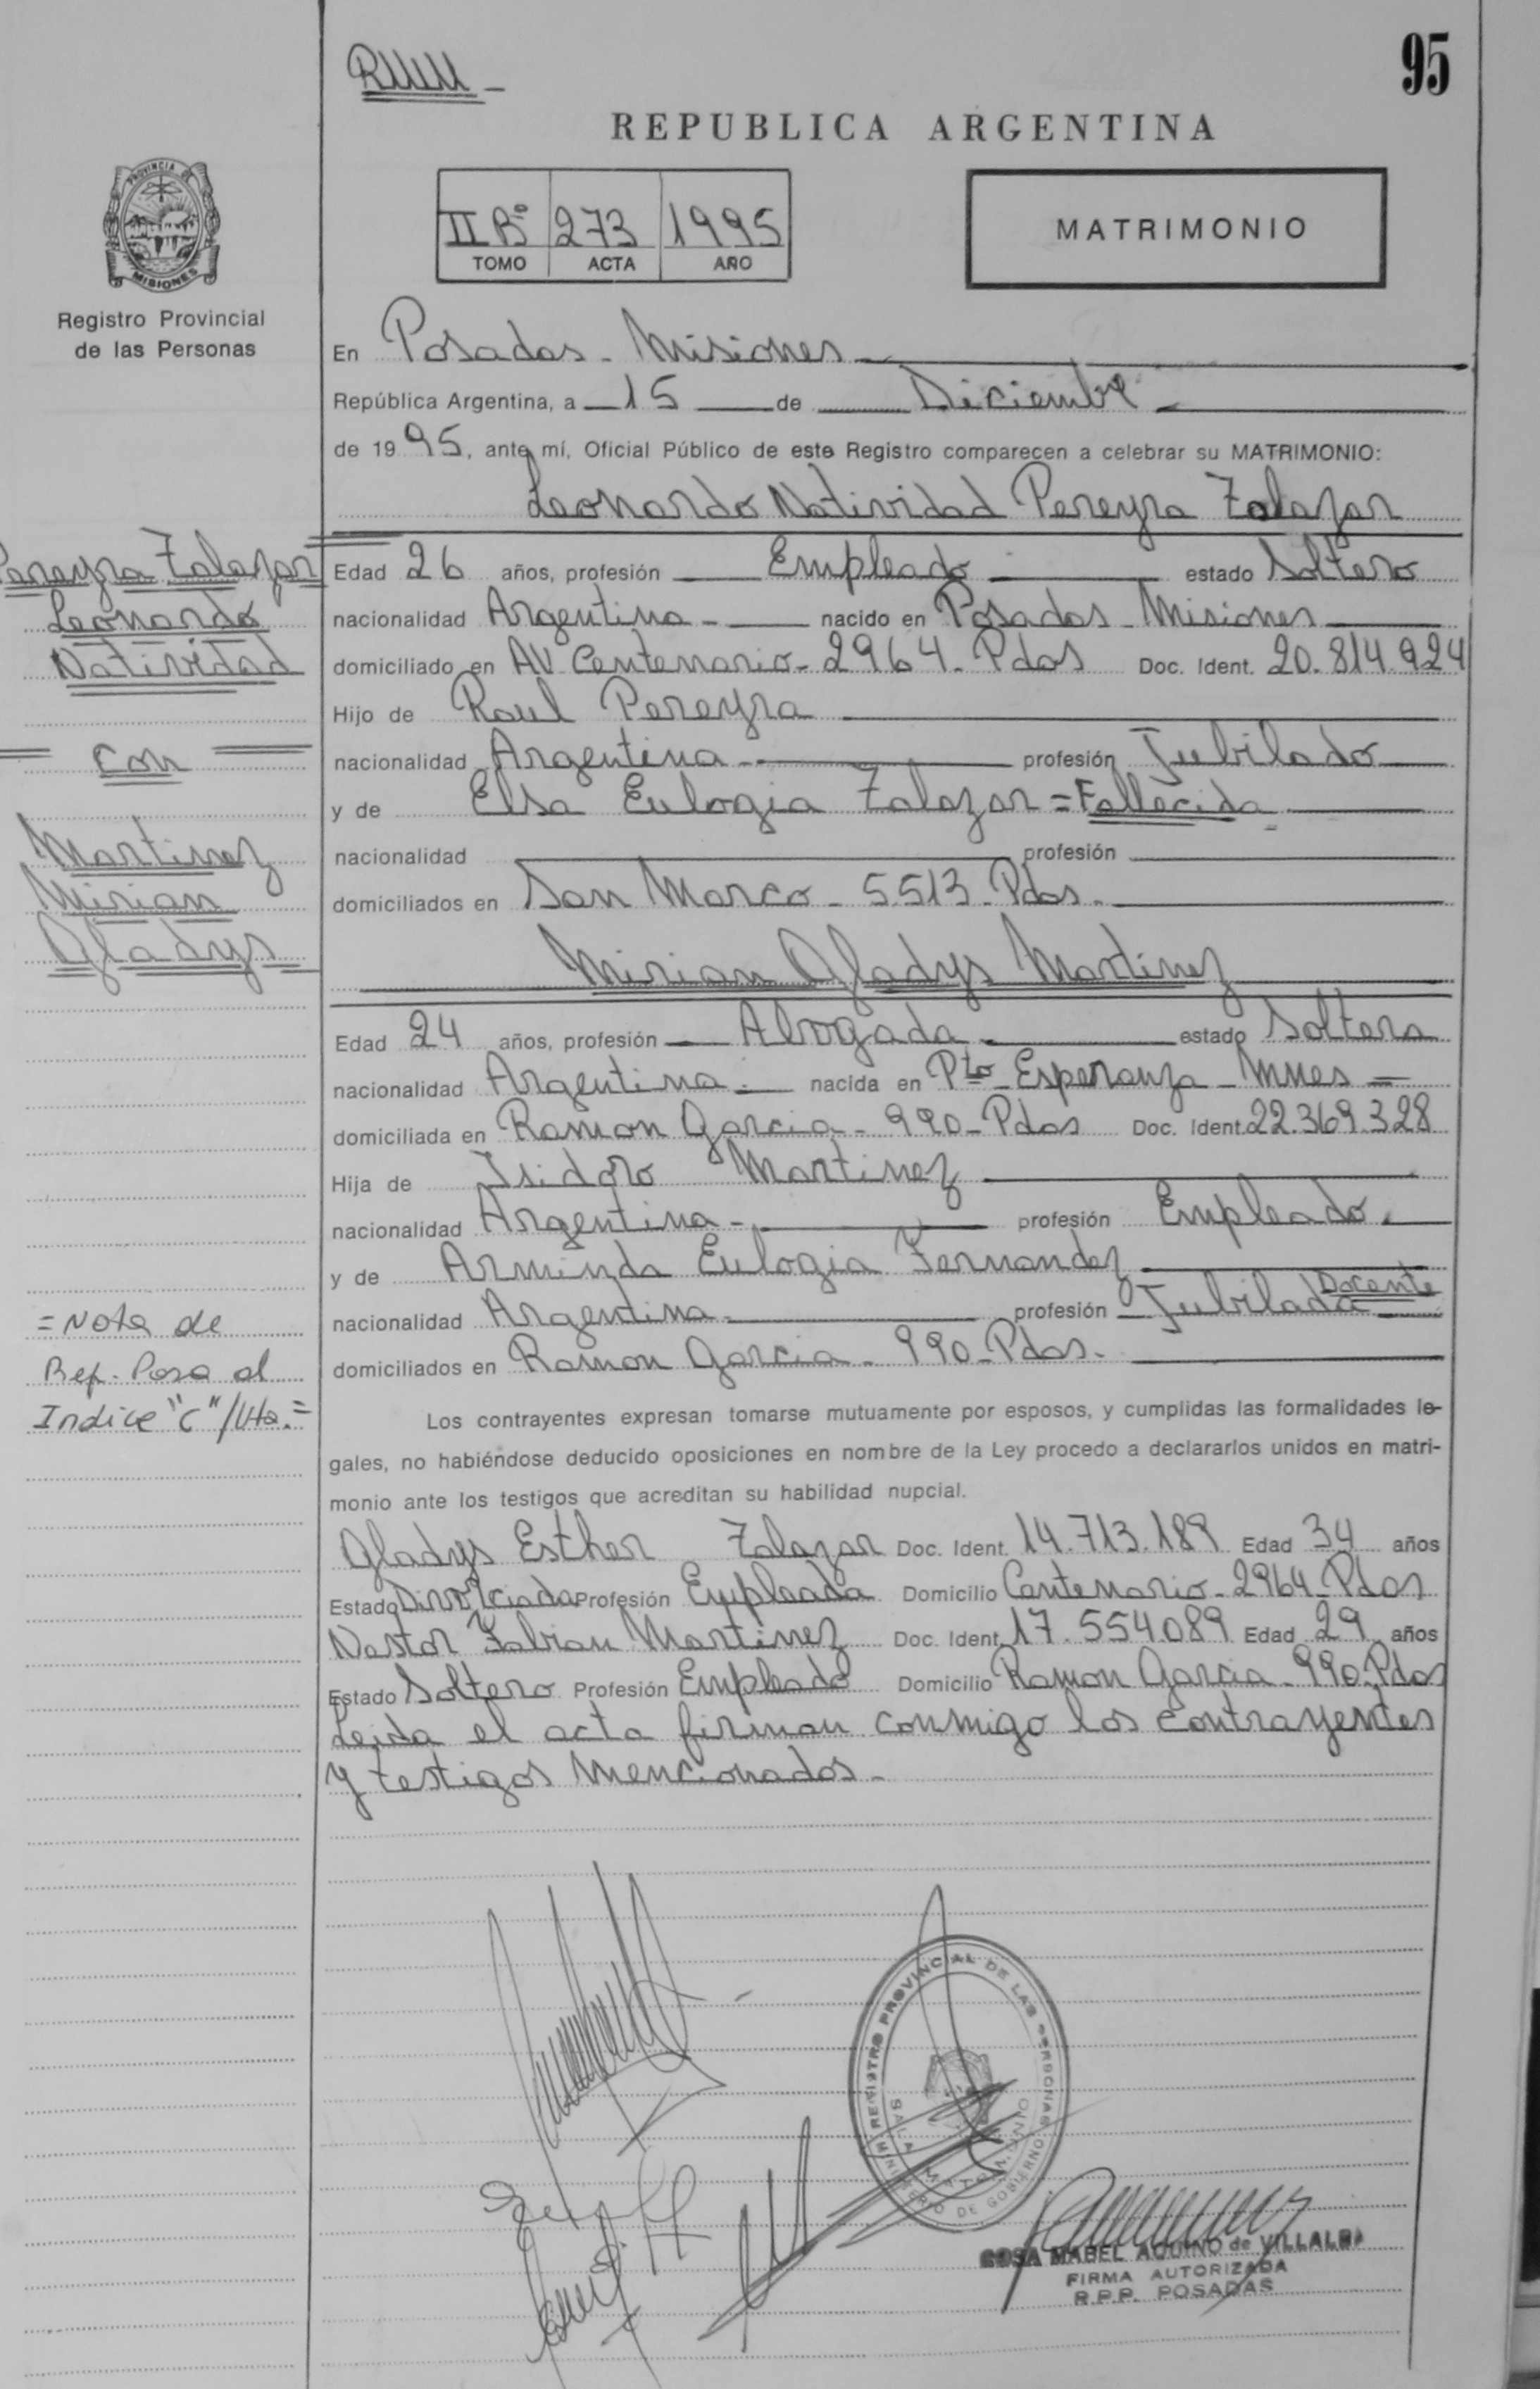 95
REPUBLICA ARGENTINA
PROVINCIA DE
MISIONES
Registro Provincial
de las Personas
II Bº 273 1995
TOMO ACTA AÑO
MATRIMONIO
En Posadas - Misiones
República Argentina, a 15 de Diciembre
de 1995, ante mí, Oficial Público de este Registro comparecen a celebrar su MATRIMONIO:
Leonardo Natividad Pereyra Zalazar
Pereyra Zalazar
Leonardo
Natividad
con
Martinez
Mirian
Gladys
Edad 26 años, profesión Empleado estado Soltero
nacionalidad Argentina - nacido en Posadas - Misiones
domiciliado en AV. Centenario - 2964 - Pdas Doc. Ident. 20.814.924
Hijo de Raul Pereyra
nacionalidad Argentina - profesión Jubilado
y de Elsa Eulogia Zalazar = Fallecida
nacionalidad profesión
domiciliados en San Marco - 5513 - Pdas.
Mirian Gladys Martinez
Edad 24 años, profesión Abogada estado Soltera
nacionalidad Argentina nacida en Pto Esperanza - Mnes =
domiciliada en Ramon Garcia - 990 - Pdas Doc. Ident. 22.369.328
Hija de Isidoro Martinez
nacionalidad Argentina - profesión Empleado.
y de Arminda Eulogia Fernandez
nacionalidad Argentina profesión Jubilada Docente
domiciliados en Ramon Garcia - 990 - Pdas.
= Nota de
Ref. Pasa al
Indice "C" /Vta. =
Los contrayentes expresan tomarse mutuamente por esposos, y cumplidas las formalidades le-
gales, no habiéndose deducido oposiciones en nombre de la Ley procedo a declararlos unidos en matri-
monio ante los testigos que acreditan su habilidad nupcial.
Gladys Esther Zalazar Doc. Ident. 14.713.189 Edad 34 años
Estado Divorciada Profesión Empleada Domicilio Centenario - 2964 - Pdas
Nestor Fabian Martinez Doc. Ident. 17.554089 Edad 29 años
Estado Soltero Profesión Empleado Domicilio Ramon Garcia - 990 - Pdas
Leida el acta firman conmigo los contrayentes
y testigos mencionados -
REGISTRO PROVINCIAL DE LAS PERSONAS
SALA MATRIMONIO
MINISTERIO DE GOBIERNO
ROSA MABEL AQUINO de VILLALBA
FIRMA AUTORIZADA
R.P.P. POSADAS